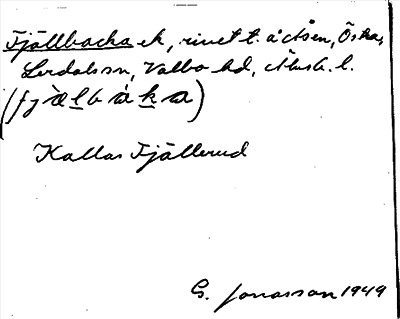 Fjällbacka ek, rivet t. a åsen, Öska,
Lerdals sn, Valbo hd, Älvsb. l.
(fjælbàka)
Kallas Fjällerud
G. Jonasson 1949